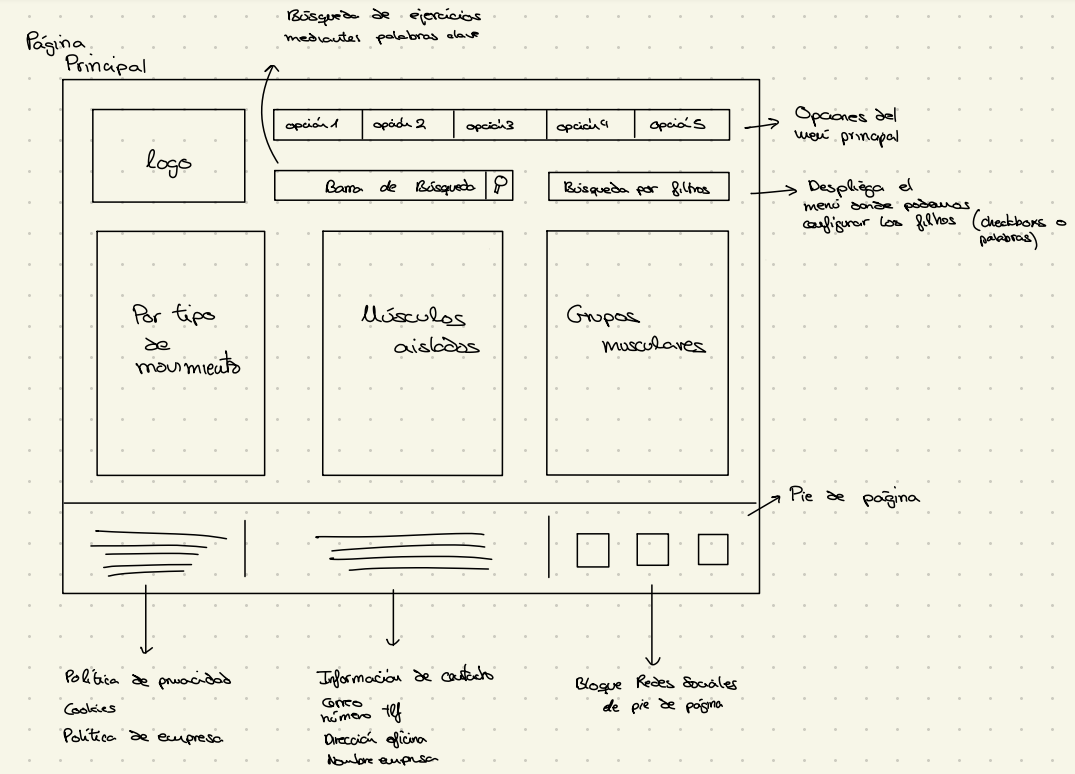 Búsqueda de ejercicios
mediantes palabras clave
Página
Principal
logo
opción 1 opción 2 opción 3 opción 4 opción 5
Opciones del
menú principal
Barra de Búsqueda
Búsqueda por filtros
Despliega el
menú donde podemos
configurar los filtros (checkboxs o
palabras)
Por tipo
de
movimiento
Músculos
aislados
Grupos
musculares
Pie de página
Política de privacidad
Cookies
Política de empresa
Información de contacto
Correo
número tlf
Dirección oficina
Nombre empresa
Bloque Redes Sociales
de pie de página